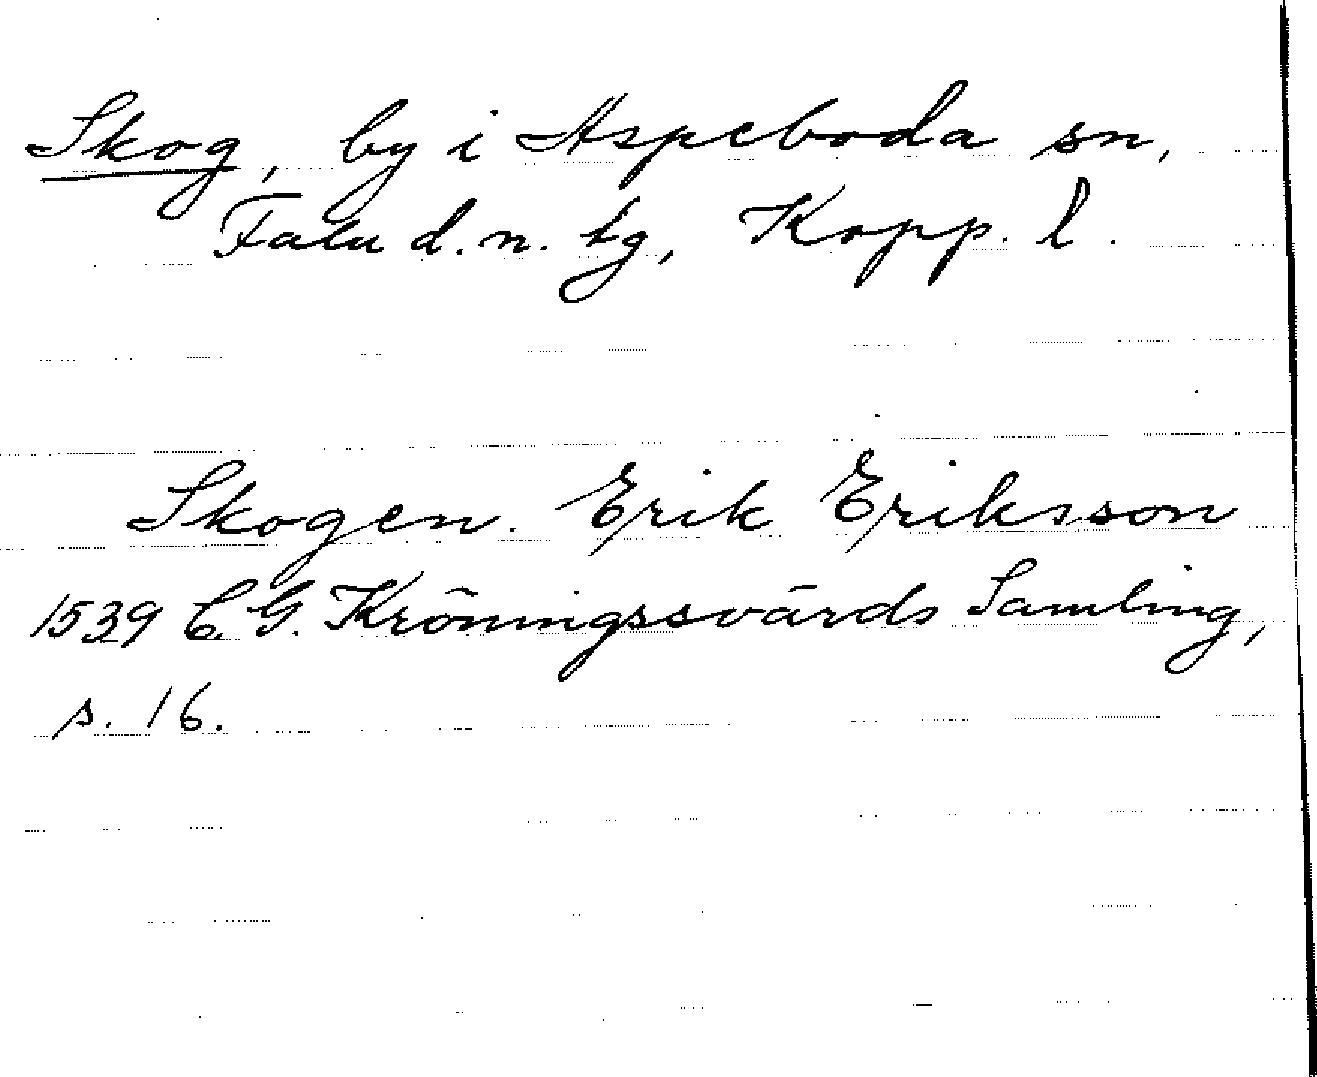 Skog, by i Aspeboda sn,
Falu d.n. tg, Kopp. l.
Skogen. Erik Eriksson
1539 C. G. Kröningssvärds Samling,
s. 16.